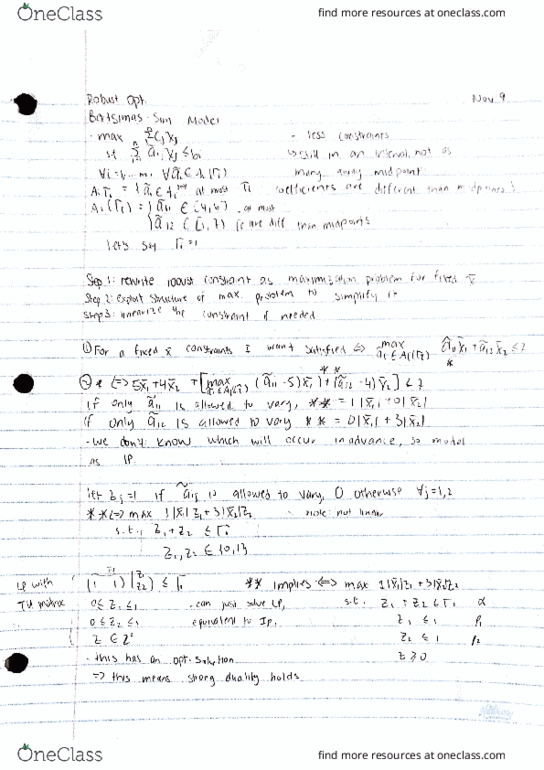 OneClass
find more resources at oneclass.com
Robust Opt.
Nov 9
Bertsimas-Sim Model
- max Σ cj xj
- less constraints
st Σ ãij xj ≤ bi
↳ still in an interval, not as
many away midpoint
at most Γi coefficients are different than midpoints}
ã11 ∈ [4,6] at most
ã12 ∈ [1,7] are diff than midpoints
let's say Γ1=1
Step 1: rewrite robust constraint as maximization problem for fixed x̄
Step 2: exploit structure of max problem to simplify it
Step 3: linearize the constraint if needed
① For a fixed x̄ constraints I want satisfied ⇔ max ã11 x̄1 + ã12 x̄2 ≤ 7
ã1 ∈ A1(Γ1) *
**
② * ⇔ 5x̄1 + 4x̄2 + [max (ã11 - 5)x̄1 + (ã12 - 4)x̄2] ≤ 7
if only ã11 is allowed to vary, ** = 1|x̄1| + 0|x̄2|
if only ã12 is allowed to vary ** = 0|x̄1| + 3|x̄2|
- we don't know which will occur in advance, so model
as IP.
let zj = 1 if ã1j is allowed to vary, 0 otherwise ∀j=1,2
** ⇔ max 1|x̄1|z1 + 3|x̄2|z2 - Note: not linear
s.t. z1 + z2 ≤ Γ1
z1, z2 ∈ {0,1}
LP with (1 1)(z1 z2) ≤ Γ1 ** implies ⇔ max 1|x̄1|z1 + 3|x̄2|z2
TU matrix 0 ≤ z1 ≤ 1 - can just solve LP, s.t. z1 + z2 ≤ Γ1 α
0 ≤ z2 ≤ 1 equivalent to IP. z1 ≤ 1 β1
z ∈ Z² z2 ≤ 1 β2
- this has an opt. solution z ≥ 0
⇒ this means strong duality holds
OneClass
find more resources at oneclass.com